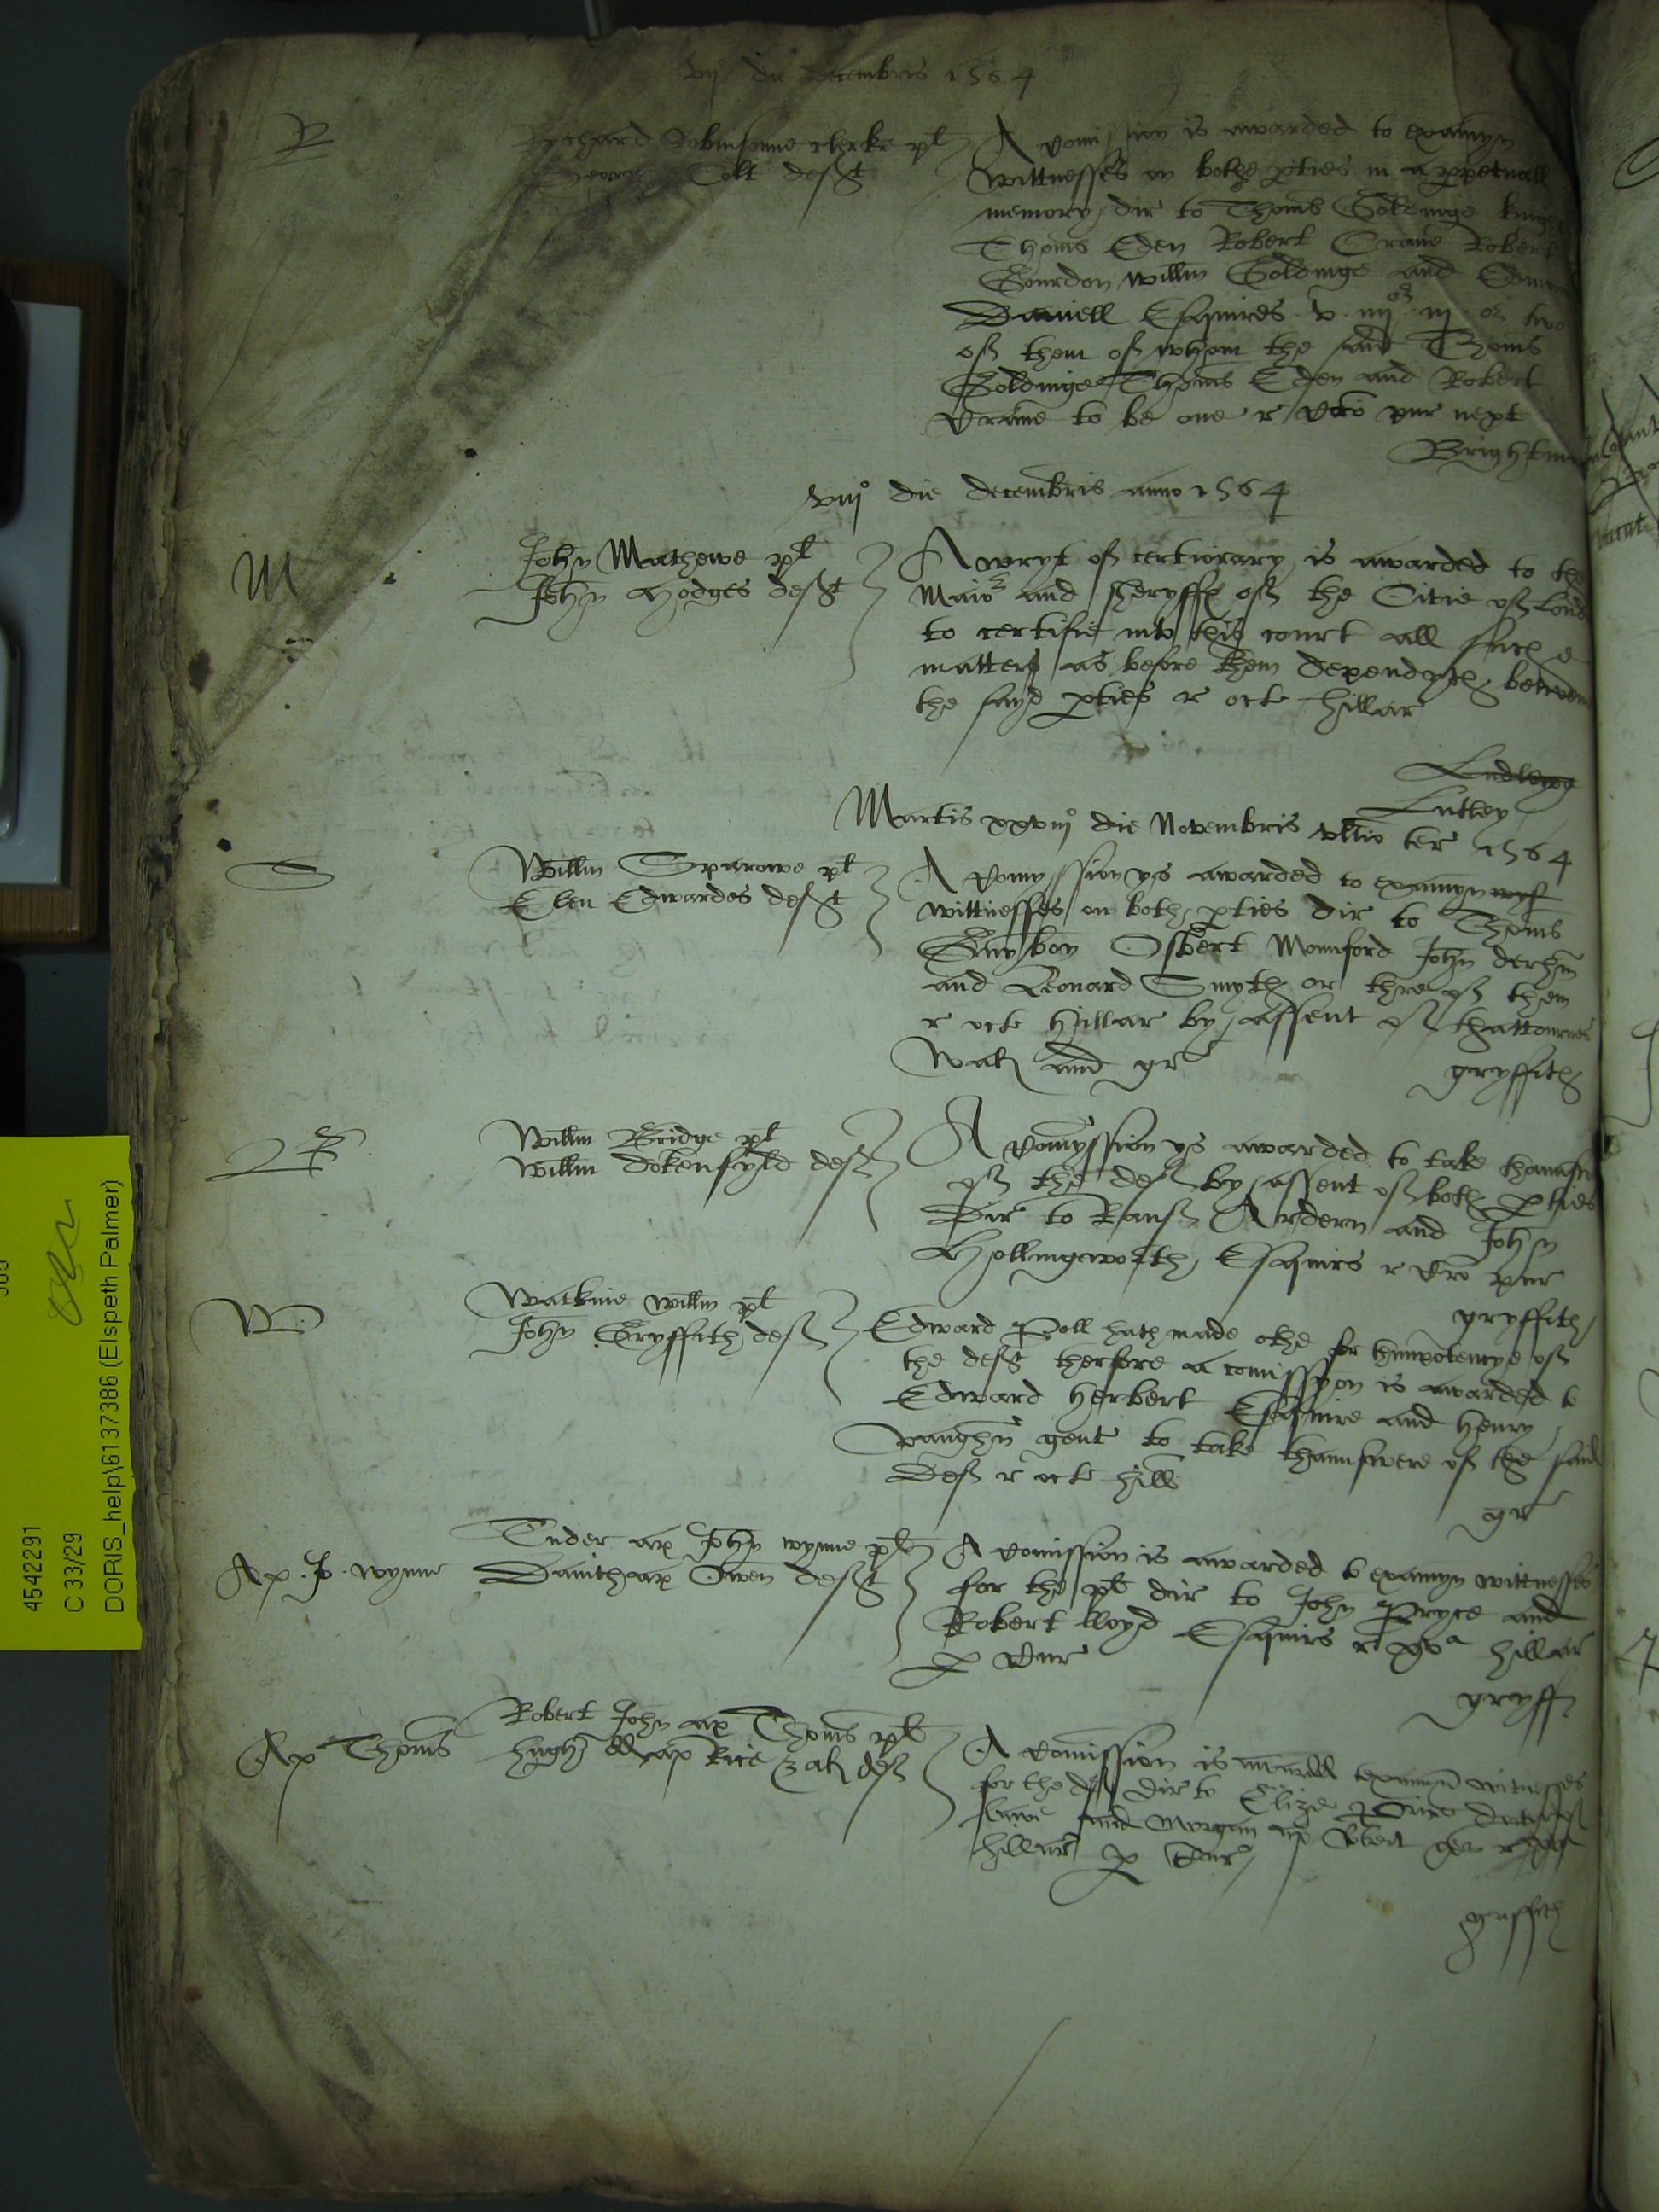 vij die decembris 1564
R
Rychard Robinsonne clerke plt
George Colt defft
A comission is awarded to examyn
wittnesses on bothe pties in a ppetuall
memory dir to Thoms Goldinge knig
Thoms Eden Robert Crane Robert
Gourdon willm Goldinge and Edmu
Daniell Esquires v iiij iij or two
off them off whom the said Thoms
Goldinge Thoms Eden and Robert
Crane to be one r cro pur next
Brightm
viij° die decembris anno 1564
M
John Mathewe plt
John Hodges defft
A wryt off certiorary is awarded to the
Maior and sheryffe off the Citie off Lond
to certifie into this court all such
matters as before them dependyth betwen
the sayd pties r octe hillar
Luttley
Martis xxviij° die Novembris ultio ter 1564
S
Willm Sparowe plt
Elen Edwardes defft
A comyssion ys awarded to examyn wyt
wittnesses on both pties dir to Thoms
Guybon Osbert Momford John derhm
and Leonard Smyth or thre off them
r octe hillar by assent off thattournes
Walf and gr
gryffith
B
Willm Bridge plt
willm dokensfyld deff
A comyssion ys awarded to take thaunsw
off the deff by assent off both pties
Dir to Rauff Ardern and John
Hollingworth Esquirs r cro pur
gryffith
W
Watkine willm plt
John Gryffith deff
Edward Poll hath made othe for thimpotencye off
the defft therfore a comissyon is awarded to
Edward Herbert Esquire and Henry
vaughn gent to take thaunswere off the said
Deff r octe hill
gr
Ap . Jo . wynne
Tuder ap John wynne plt
Dauith ap Owen defft
A comission is awarded to examyn wittnesses
for the plt dir to John Pryce and
Robert lloyd Esquirs r xva hillar
p Cur
gryff
Ap Thoms
Robert John ap Thoms plt
hugh ap Rice & al deff
A comission is awarded texamyn witnesses
for the deff dir to Elize Price
and morgan ap Robert gen r xva
hillar p Cur
gryffith
4542291
C 33/29
DORIS_help\6137386 (Elspeth Palmer)